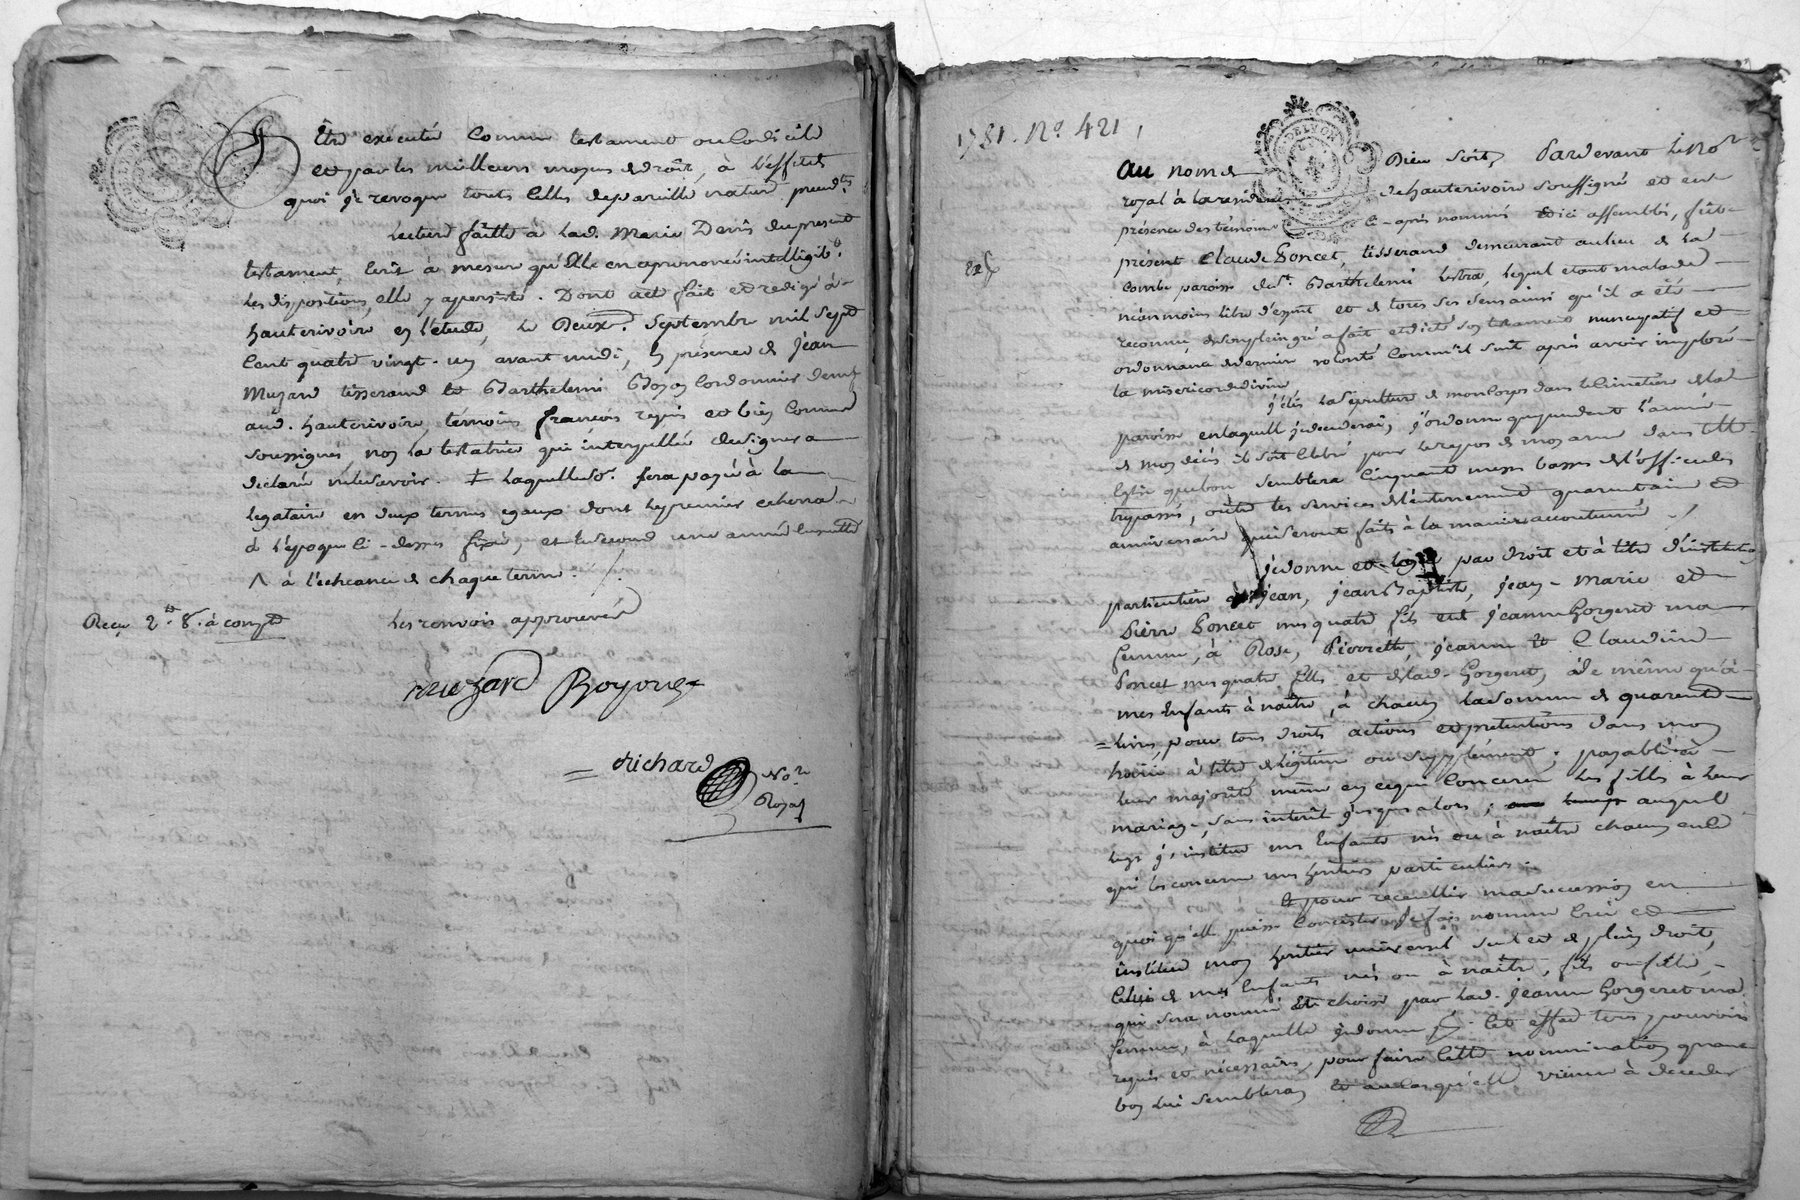 Etre exécuté comme testament ou codicile
et par les meilleurs moyens de droit, à l'effet de
quoi je revoque touts celles de pareille nature précédtes
Lecture faitte a lad. Marie Denis du present
testament, écrit à mesure qu'Elle en a prononcé intelligibt
les dispositions, elle y a persisté. Dont acte fait et redigé à
hauterivoire en l'etude, le Deux Septembre mil sept
cent quatre vingt-un avant midi, en présence de jean
Muzard tisserand et Barthelemi Boyon Cordonnier demt
aud. hauterivoire, témoins françois requis et bien connus
soussignés non la testatrice qui interpellée de signer a
déclaré ne le savoir. ‡ laquelle so. sera payée à la
legataire en deux termes egaux dont le premier echerra
à l'epoque ci-dessus fixée, et le second une année ensuitte
Λ à l'echeance de chaque terme.
Reçu 2tt. 8s. à compte
Les renvois approuvés
muzard Boyon
= Richard
Nore
Royal
1781. No. 421
au nom de Dieu soit, Pardevant le Nore
royal à la residence de hauterivoire soussigné et en
présence des témoins ci-après nommés et ici assemblés, fut
présent Claude Poncet, tisserand demeurant au lieu de la
Exp
combe paroisse de St. Barthelemi Lestra, lequel etant malade
néanmoins libre d'esprit et de tous ses sens ainsi qu'il a été
reconnu de son plein gré a fait et dicté son testament nuncupatif et
ordonnance de derniere volonté comm'il suit après avoir imploré
la misericorde divine
j'élis la sépulture de mon corps dans le cimetiere de la
paroisse en laquelle je decederai, j'ordonne que pendant l'année
de mon décès il soit célébré pour le repos de mon ame dans telle
Eglise que bon semblera cinquante messes basses de l'office des
trepassés, outre les services de l'enterrement quarantaine et
anniversaire qui seront faits à la maniere accoutumée.
je donne et legue par droit et à titre d'institution
particuliere à jean, jean Baptiste, jean-marie et
Pierre Poncet mes quatre fils et de jeanne Gorgeret ma
femme, à Rose, Pierrette, jeanne et Claudine
Poncet mes quatre filles et de lad. Gorgeret, de même qu'à
mes Enfants à naître, à chacun la somme de quarente
= livres, pour tous droits actions et pretentions dans mon
hoirie à titre de légitime ou supplément; payable à
leur majorité, même en ce qui concerne les filles à leur
mariage, sans interêt jusques alors; auquel
legs j'institue mes Enfants nés ou à naître chacun en ce
qui les concerne mes heritiers particuliers.
Et pour recueillir ma succession en
quoi qu'elle puisse consister je fais nomme crée et
institue mon heritier universel seul et de plein droit,
Celui de mes Enfants nés ou à naître, fils ou fille,
qui sera nommé et choisi par lad. jeanne Gorgeret ma
femme, à laquelle je donne à cet effet tous pouvoirs
requis et nécessaires, pour faire cette nomination quand
bon lui semblera, et au cas qu'elle vienne à deceder